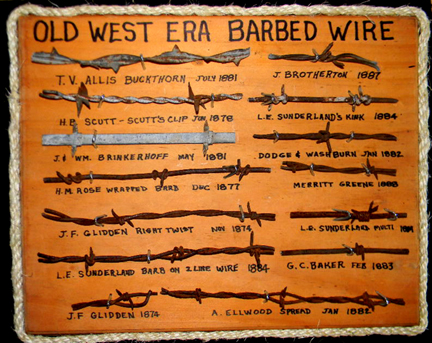 OLD WEST ERA BARBED WIRE
T.V. ALLIS BUCKTHORN JULY 1881
J. BROTHERTON 1887
H.B. SCUTT - SCUTT'S CLIP JUN 1878
L.E. SUNDERLAND'S KINK 1884
J. & WM. BRINKERHOFF MAY 1881
DODGE & WASHBURN JAN 1882
H.M. ROSE WRAPPED BARB DEC 1877
MERRITT GREENE 1888
J.F. GLIDDEN RIGHT TWIST NOV 1874
L.E. SUNDERLAND
L.E. SUNDERLAND BARB ON 2 LINE WIRE 1884
G.C. BAKER FEB 1883
J.F GLIDDEN 1874
A. ELLWOOD SPREAD JAN 1882